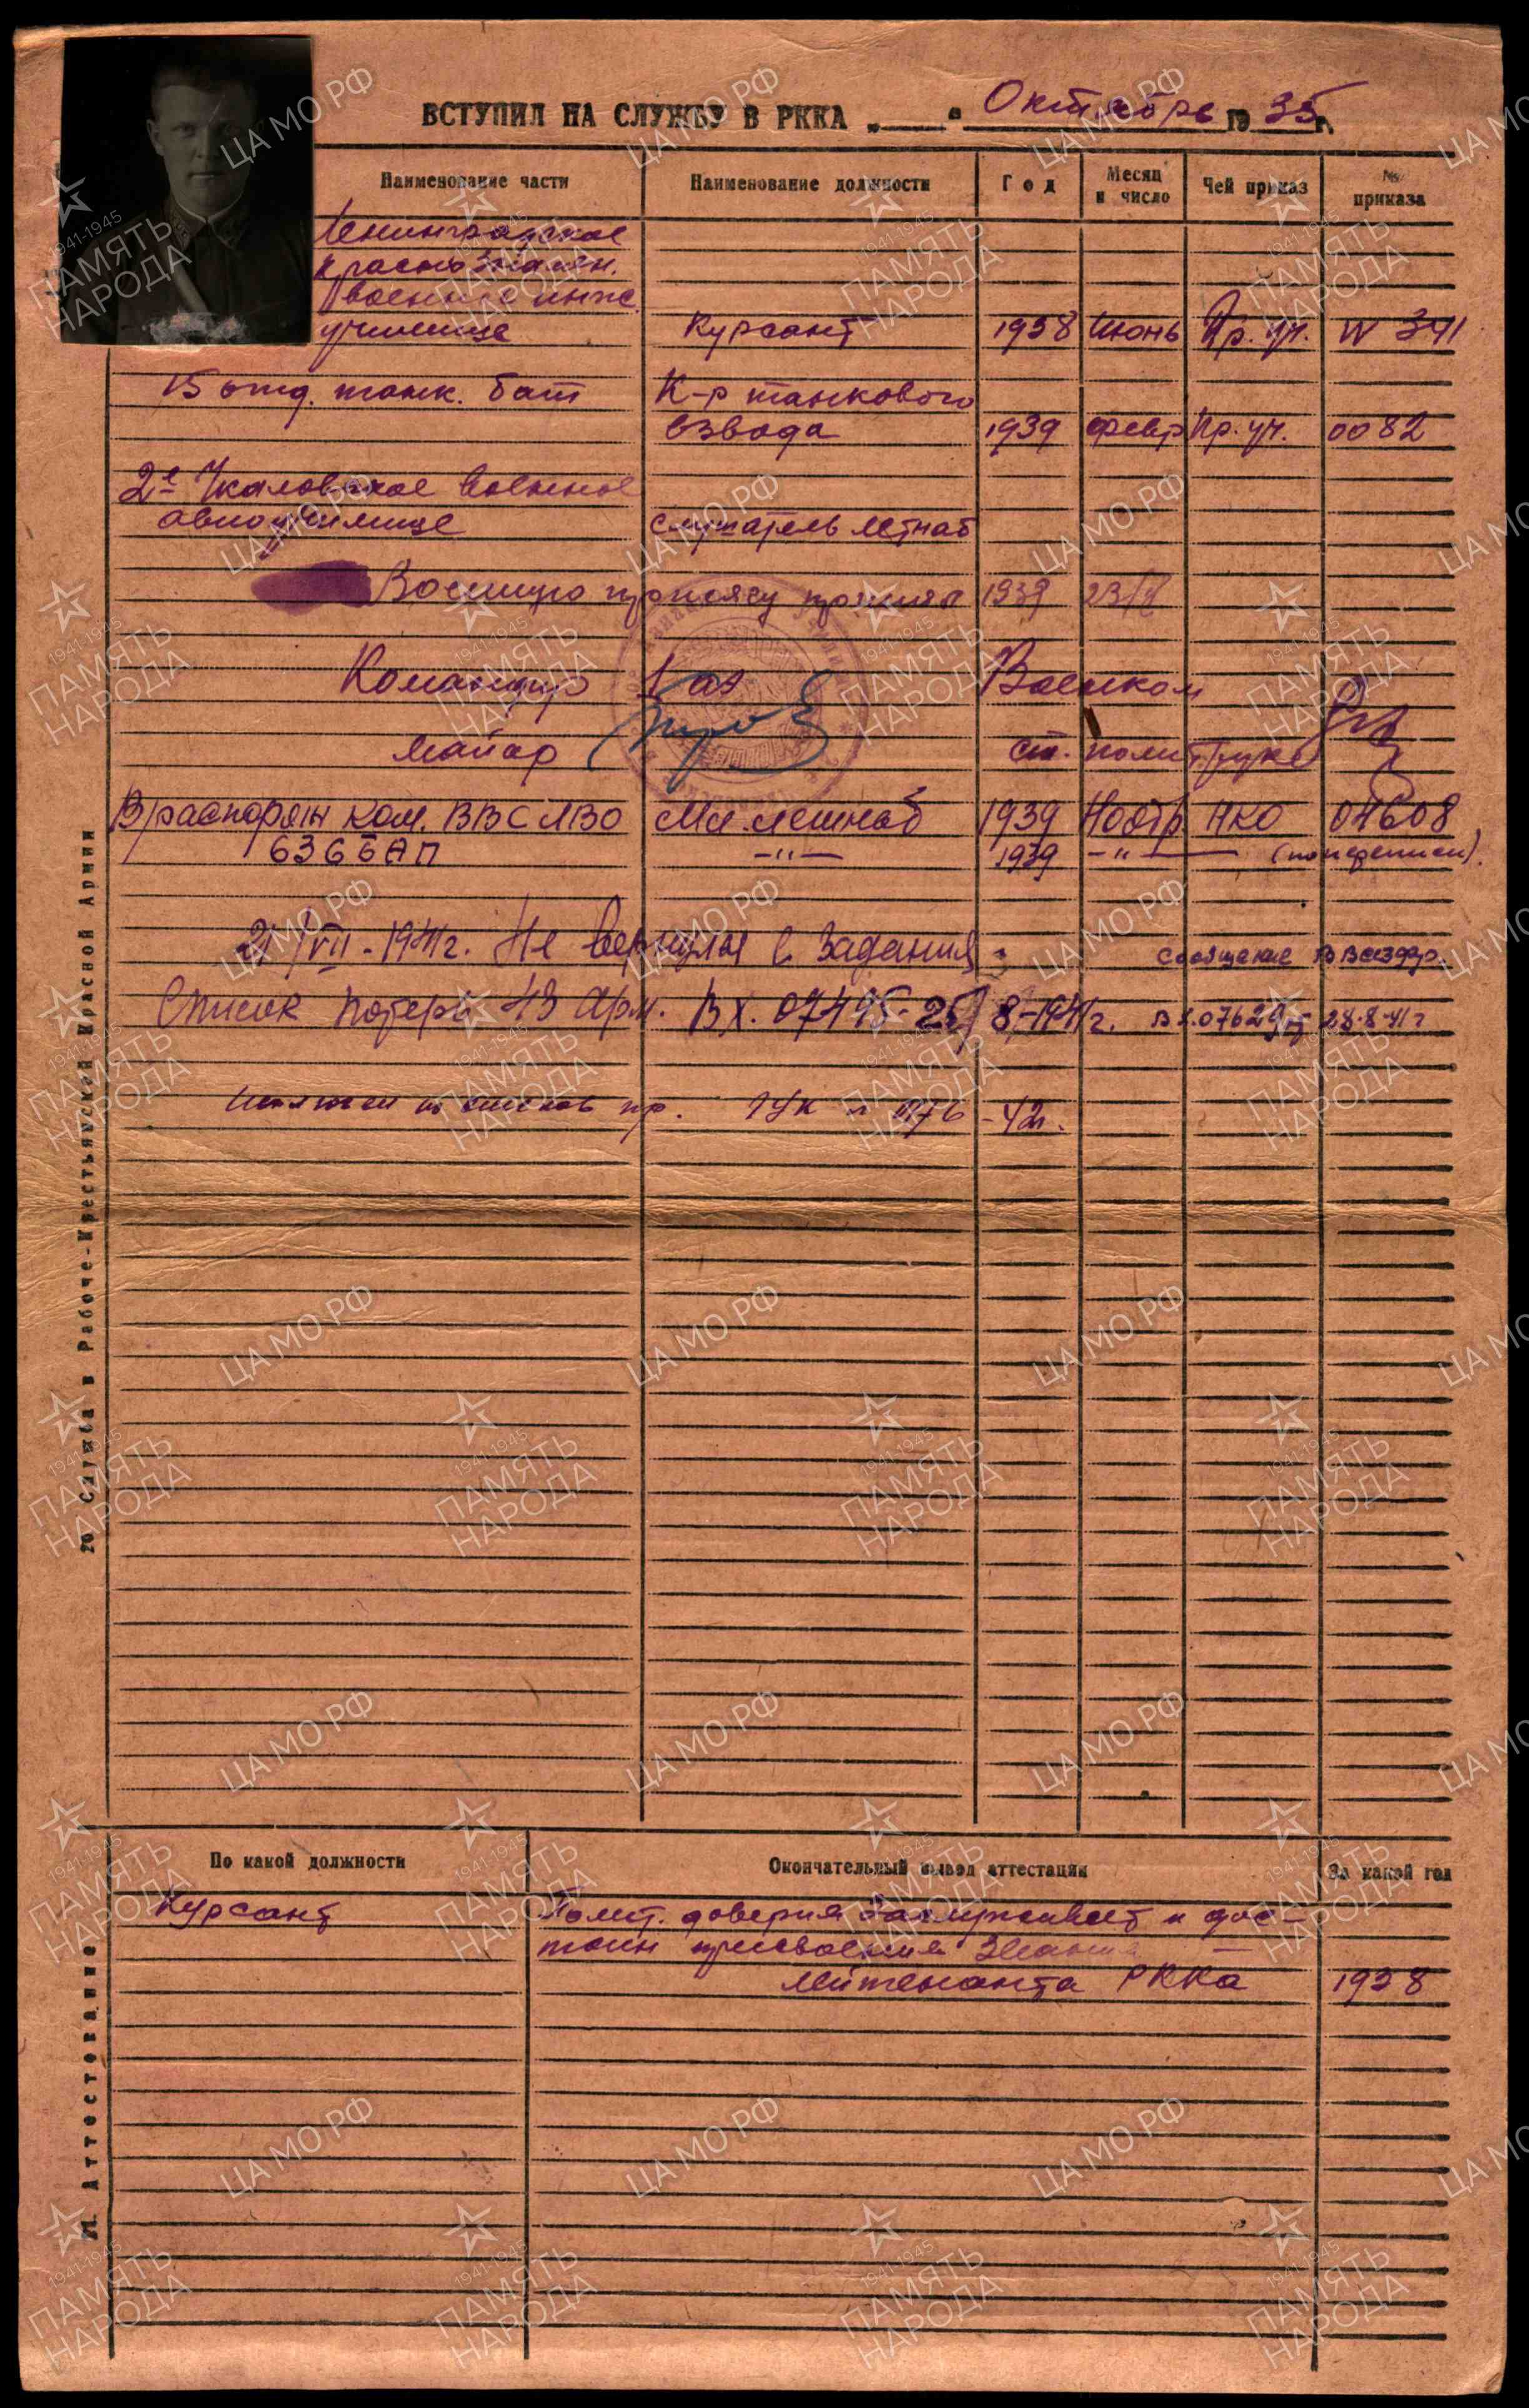 ВСТУПИЛ НА СЛУЖБУ В РККА „ “ Октябрь 19 35 г.
Наименование части Наименование должности Год Месяц и число Чей приказ № приказа
Ленинградское
Краснознамен.
военное инж.
училище Курсант 1938 Июнь Пр. уч. N 341
15 отд. танк. бат К-р танкового
взвода 1939 февр Пр. уч. 0082
2е Чкаловское военное
авиоучилище слушатель летнаб
Военную присягу принял 1939 23/II
Командир 1 аэ Военком
майор ст. политрук
В распоряж Ком. ВВС ЛВО Мл. летнаб 1939 Ноябр НКО 04608
636 БАП —"— 1939 —"—
21/VII-1941г. Не вернулся с задания
Список потерь 43 Арм. Вх. 07495-25/8-1941г. Вх.07629 от 28.8.41г
Исключен из списков пр. ГУК -42г.
20 Служба в Рабоче-Крестьянской Красной Армии
По какой должности Окончательный вывод аттестации За какой год
Курсант Полит. доверия заслуживает и дос-
тоин присвоения звания
лейтенанта РККА 1938
21. Аттестование
ЦА МО РФ
1941-1945
ПАМЯТЬ
НАРОДА